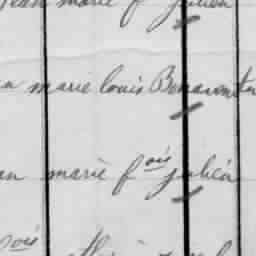 Jean marie f julien
n marie louis Benaventu
an marie f ois julién
ois